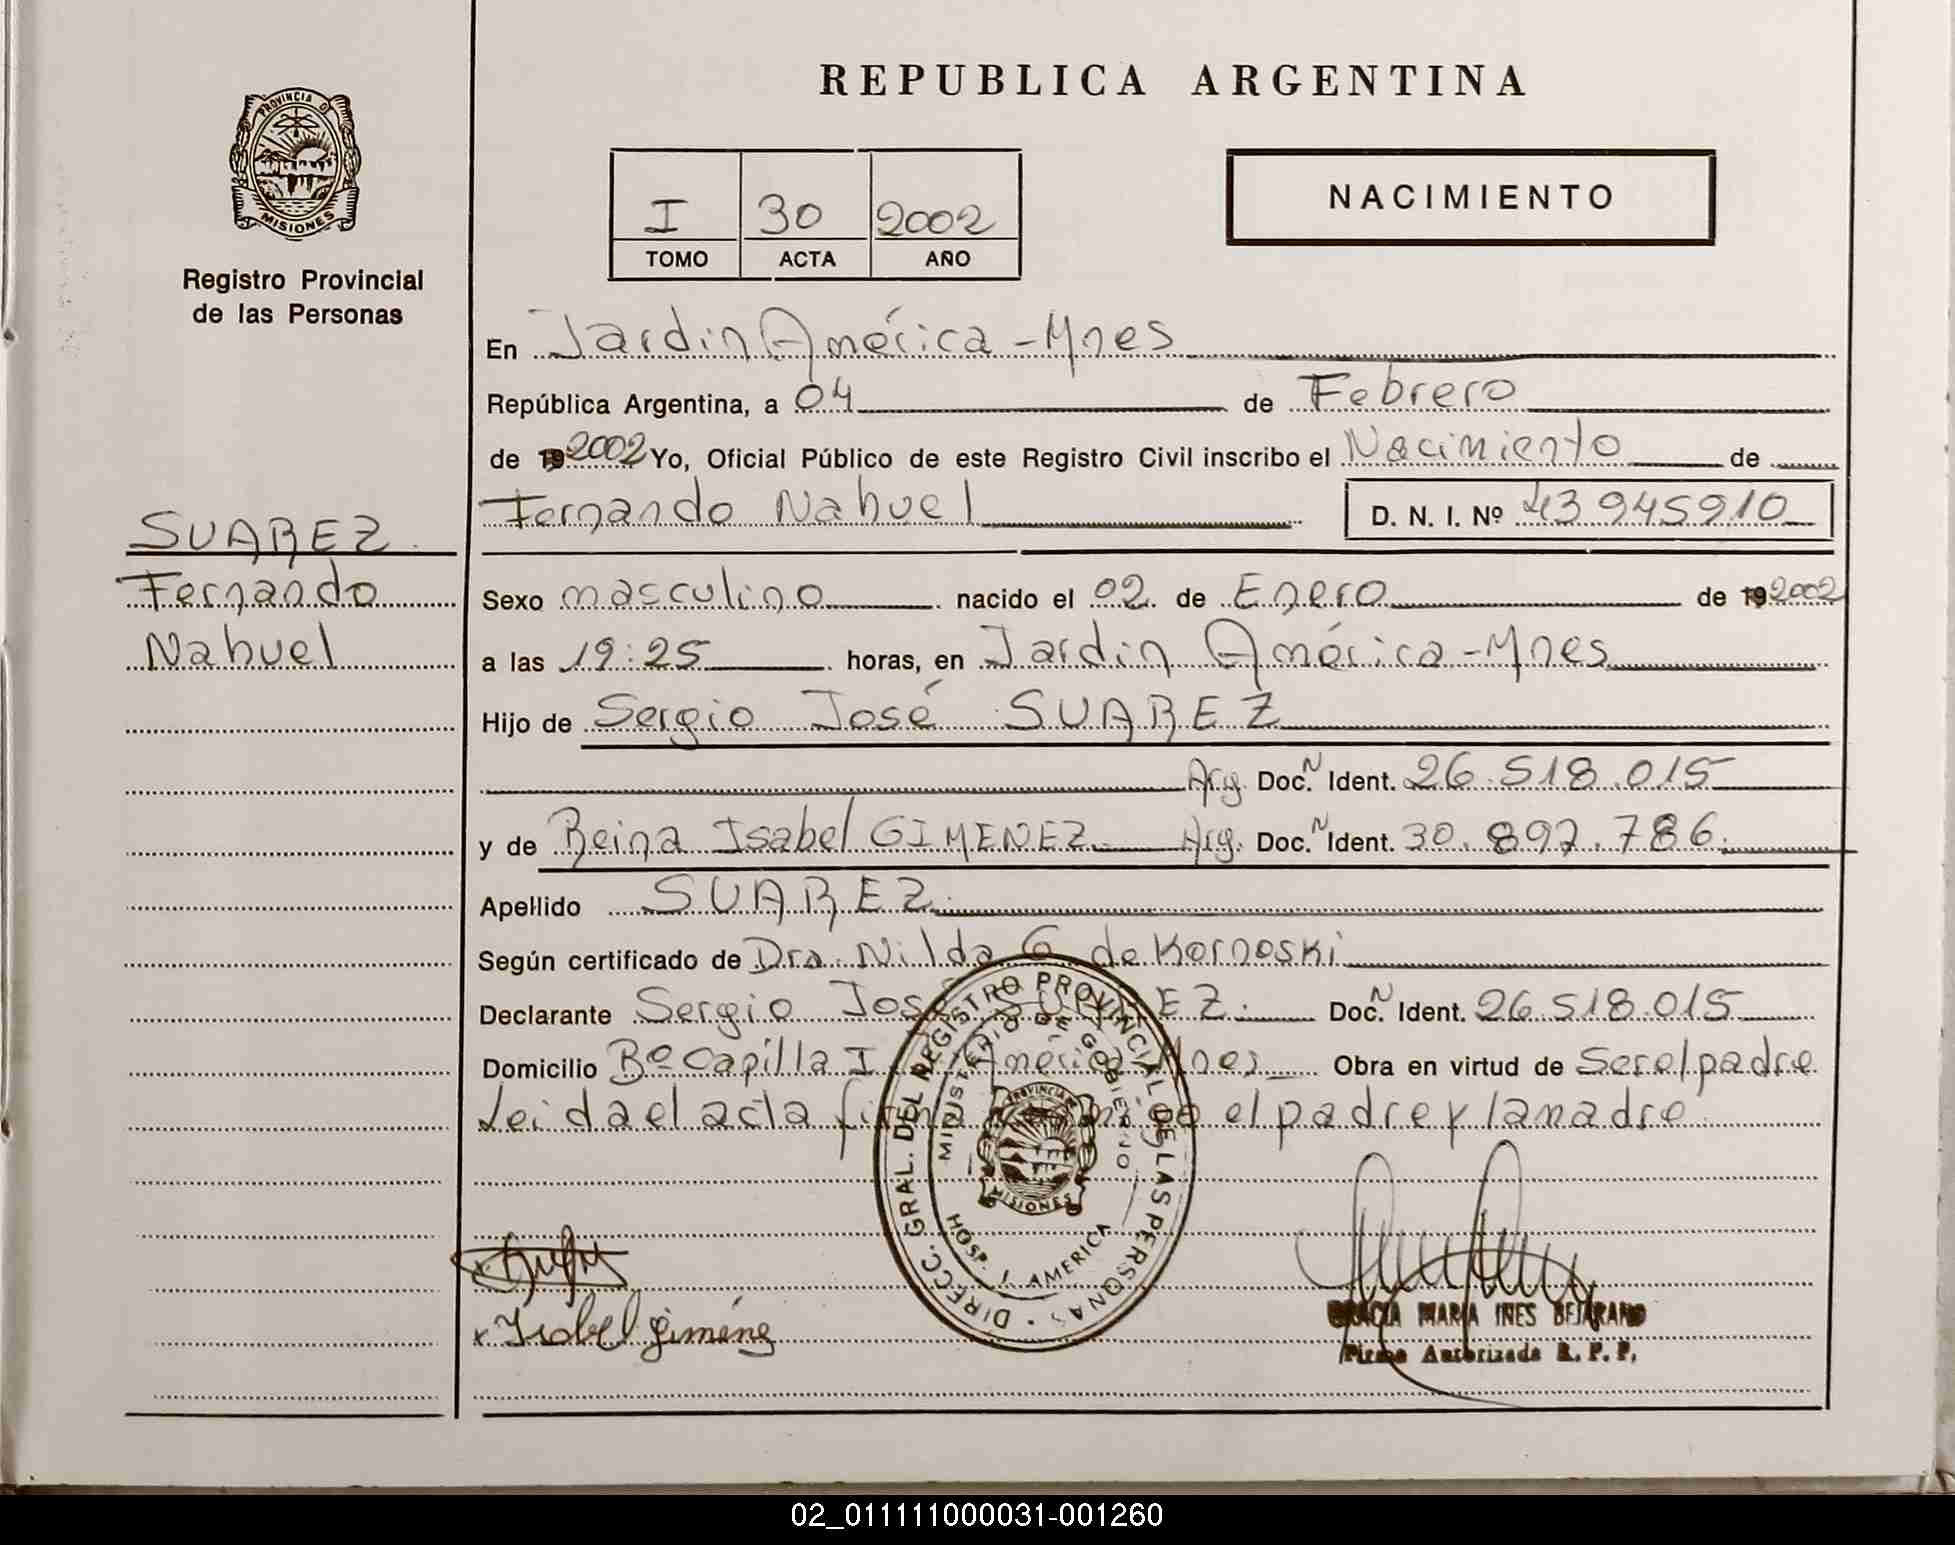 REPUBLICA ARGENTINA
PROVINCIA D
MISIONES
Registro Provincial
de las Personas
I 30 2002
TOMO ACTA AÑO
NACIMIENTO
En Jardin América - Mnes
República Argentina, a 04 de Febrero
de 19 2002 Yo, Oficial Público de este Registro Civil inscribo el Nacimiento de
Fernando Nahuel D. N. I. Nº 43945910
SUAREZ
Fernando
Nahuel
Sexo masculino nacido el 02 de Enero de 19 2002
a las 19:25 horas, en Jardin América - Mnes
Hijo de Sergio José SUAREZ
Arg. Doc. N Ident. 26.518.015
y de Reina Isabel GIMENEZ Arg. Doc. N Ident. 30.897.786.
Apellido SUAREZ
Según certificado de Dra. Nilda G de Kornoski
Declarante Sergio José SUAREZ Doc. N Ident. 26.518.015
Domicilio Bº Capilla I América Mnes Obra en virtud de Ser el padre
Leida el acta el padre y la madre
DIRECC. GRAL. DEL REGISTRO PROVINCIAL DE LAS PERSONAS
MINISTERIO DE GOBIERNO
PROVINCIA DE
MISIONES
HOSP. J. AMERICA
x Isabel Giménez
MARIA INES BEJARANO
Firma Autorizada R. P. P.
02_011111000031-001260